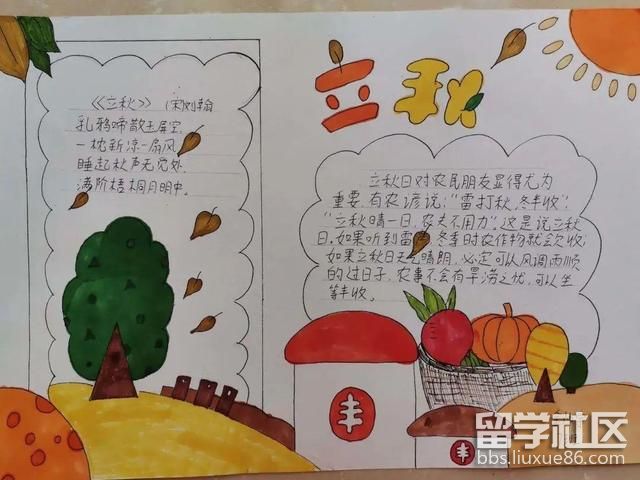 立秋
《立秋》 (宋)刘翰
乳鸦啼散玉屏空,
一枕新凉一扇风。
睡起秋声无觅处,
满阶梧桐月明中。
立秋日对农民朋友显得尤为
重要,有农谚说:"雷打秋,冬半收",
"立秋晴一日,农夫不用力"。这是说立秋
日,如果听到雷声,冬季时农作物就会欠收;
如果立秋日天气晴朗,必定可以风调雨顺
的过日子,农事不会有旱涝之忧,可以坐
等丰收。
丰
丰
留学社区
bbs.liuxue86.com